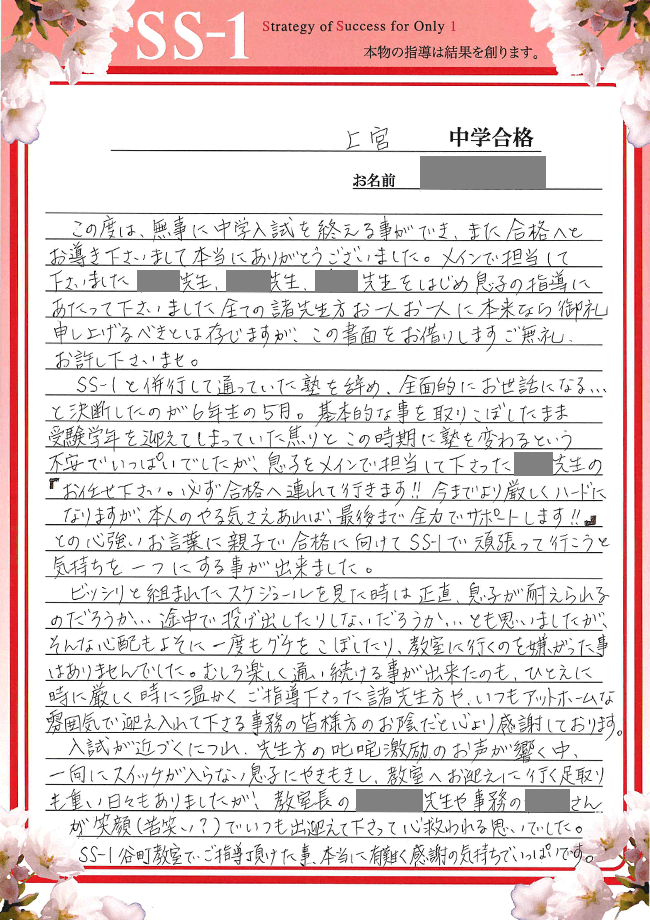 SS-1
Strategy of Success for Only 1
本物の指導は結果を創ります。
上宮 中学合格
お名前
この度は、無事に中学入試を終える事ができ、また合格へと
お導き下さいまして本当にありがとうございました。メインで担当して
下さいました 先生、 先生、 先生をはじめ息子の指導に
あたって下さいました全ての諸先生方お一人お一人に本来なら御礼
申し上げるべきとは存じますが、この書面をお借りしますご無礼、
お許し下さいませ。
SS-1と併行して通っていた塾を辞め、全面的にお世話になる…
と決断したのが6年生の5月。基本的な事を取りこぼしたまま
受験学年を迎えてしまっていた焦りとこの時期に塾を変わるという
不安でいっぱいでしたが、息子をメインで担当して下さった 先生の
『お任せ下さい。必ず合格へ連れて行きます!!今までより厳しくハードに
なりますが、本人のやる気さえあれば、最後まで全力でサポートします!!』
との心強いお言葉に親子で合格に向けてSS-1で頑張って行こうと
気持ちを一つにする事が出来ました。
ビッシリと組まれたスケジュールを見た時は正直、息子が耐えられる
のだろうか…途中で投げ出したりしないだろうか…とも思いましたが、
そんな心配もよそに一度もグチをこぼしたり、教室に行くのを嫌がった事
はありませんでした。むしろ楽しく通い続ける事が出来たのも、ひとえに
時に厳しく時に温かくご指導下さった諸先生方や、いつもアットホームな
雰囲気で迎え入れて下さる事務の皆様方のお陰だと心より感謝しております。
入試が近づくにつれ、先生方の叱咤激励のお声が響く中、
一向にスイッチが入らない息子にやきもきし、教室へお迎えに行く足取り
も重い日々もありましたが、教室長の 先生や事務の さん
が笑顔(苦笑い?)でいつも出迎えて下さって心救われる思いでした。
SS-1谷町教室でご指導頂けた事、本当に有難く感謝の気持ちでいっぱいです。